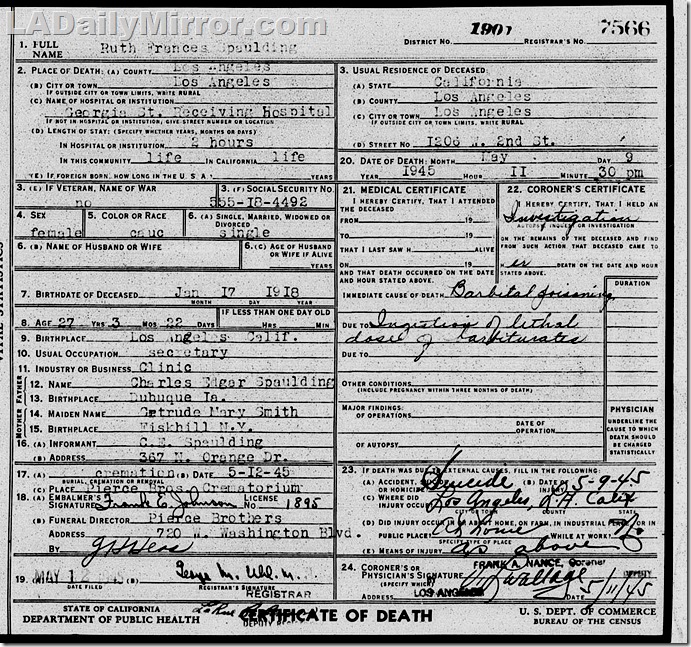 LADailyMirror.com
1901 7566
DISTRICT NO. REGISTRAR'S NO.
1. FULL NAME Ruth Frances Spaulding
2. PLACE OF DEATH: (A) COUNTY Los Angeles
(B) CITY OR TOWN Los Angeles
IF OUTSIDE CITY OR TOWN LIMITS, WRITE RURAL
(C) NAME OF HOSPITAL OR INSTITUTION
Georgia St. Receiving Hospital
IF NOT IN HOSPITAL OR INSTITUTION, GIVE STREET NUMBER OR LOCATION
(D) LENGTH OF STAY: (SPECIFY WHETHER YEARS, MONTHS OR DAYS)
IN HOSPITAL OR INSTITUTION 2 hours
IN THIS COMMUNITY life IN CALIFORNIA life
(E) IF FOREIGN BORN, HOW LONG IN THE U.S.A? YEARS
3. USUAL RESIDENCE OF DECEASED:
(A) STATE California
(B) COUNTY Los Angeles
(C) CITY OR TOWN Los Angeles
IF OUTSIDE CITY OR TOWN LIMITS, WRITE RURAL
(D) STREET NO 1206 W. 2nd St.
20. DATE OF DEATH: MONTH May DAY 9
YEAR 1945 HOUR 11 MINUTE 30 pm
3. (E) IF VETERAN, NAME OF WAR no
3. (F) SOCIAL SECURITY NO. 555-18-4492
4. SEX female
5. COLOR OR RACE cauc
6. (A) SINGLE, MARRIED, WIDOWED OR DIVORCED single
6. (B) NAME OF HUSBAND OR WIFE
6. (C) AGE OF HUSBAND OR WIFE IF ALIVE YEARS
7. BIRTHDATE OF DECEASED Jan 17 1918
MONTH DAY YEAR
8. AGE 27 YRS 3 MOS 22 DAYS
IF LESS THAN ONE DAY OLD
HOURS MINUTES
9. BIRTHPLACE Los Angeles Calif.
10. USUAL OCCUPATION secretary
11. INDUSTRY OR BUSINESS Clinic
MOTHER FATHER
12. NAME Charles Edgar Spaulding
13. BIRTHPLACE Dubuque Ia.
14. MAIDEN NAME Gertrude Mary Smith
15. BIRTHPLACE Fiskhill N.Y.
16. (A) INFORMANT C.E. Spaulding
(B) ADDRESS 367 N. Orange Dr.
17. (A) cremation (B) DATE 5-12-45
BURIAL, CREMATION OR REMOVAL
(C) PLACE Pierce Bros. Crematorium
18. (A) EMBALMER'S SIGNATURE Frank E. Johnson LICENSE NO. 1895
(B) FUNERAL DIRECTOR Pierce Brothers
ADDRESS 720 W. Washington Blvd.
BY
19. MAY 12
DATE FILED REGISTRAR'S SIGNATURE
REGISTRAR
21. MEDICAL CERTIFICATE
I HEREBY CERTIFY, THAT I ATTENDED THE DECEASED
FROM 19
TO 19
THAT I LAST SAW H ALIVE
ON 19
AND THAT DEATH OCCURRED ON THE DATE AND HOUR STATED ABOVE.
22. CORONER'S CERTIFICATE
I HEREBY CERTIFY, THAT I HELD AN
Investigation
AUTOPSY, INQUEST OR INVESTIGATION
ON THE REMAINS OF THE DECEASED AND FIND FROM SUCH ACTION THAT DECEASED CAME TO
H er DEATH ON THE DATE AND HOUR STATED ABOVE.
DURATION
IMMEDIATE CAUSE OF DEATH Barbital poisoning
DUE TO Ingestion of lethal
dose of barbiturates
DUE TO
OTHER CONDITIONS
(INCLUDE PREGNANCY WITHIN THREE MONTHS OF DEATH)
MAJOR FINDINGS:
OF OPERATIONS
DATE OF OPERATION
OF AUTOPSY
PHYSICIAN
UNDERLINE THE CAUSE TO WHICH DEATH SHOULD BE CHARGED STATISTICALLY
23. IF DEATH WAS DUE TO EXTERNAL CAUSES, FILL IN THE FOLLOWING:
(A) ACCIDENT, SUICIDE OR HOMICIDE Suicide (B) DATE OF INJURY 5-9-45
(C) WHERE DID INJURY OCCUR? Los Angeles, L.A. Calif
(D) DID INJURY OCCUR IN OR ABOUT HOME, ON FARM, IN INDUSTRIAL PLACE, OR IN
PUBLIC PLACE? Home WHILE AT WORK? No
SPECIFY TYPE OF PLACE
(E) MEANS OF INJURY as above
24. CORONER'S OR PHYSICIAN'S SIGNATURE FRANK A. NANCE, Coroner
Wallage DEPUTY
ADDRESS LOS ANGELES DATE 5/11/45
STATE OF CALIFORNIA
DEPARTMENT OF PUBLIC HEALTH
CERTIFICATE OF DEATH
U. S. DEPT. OF COMMERCE
BUREAU OF THE CENSUS